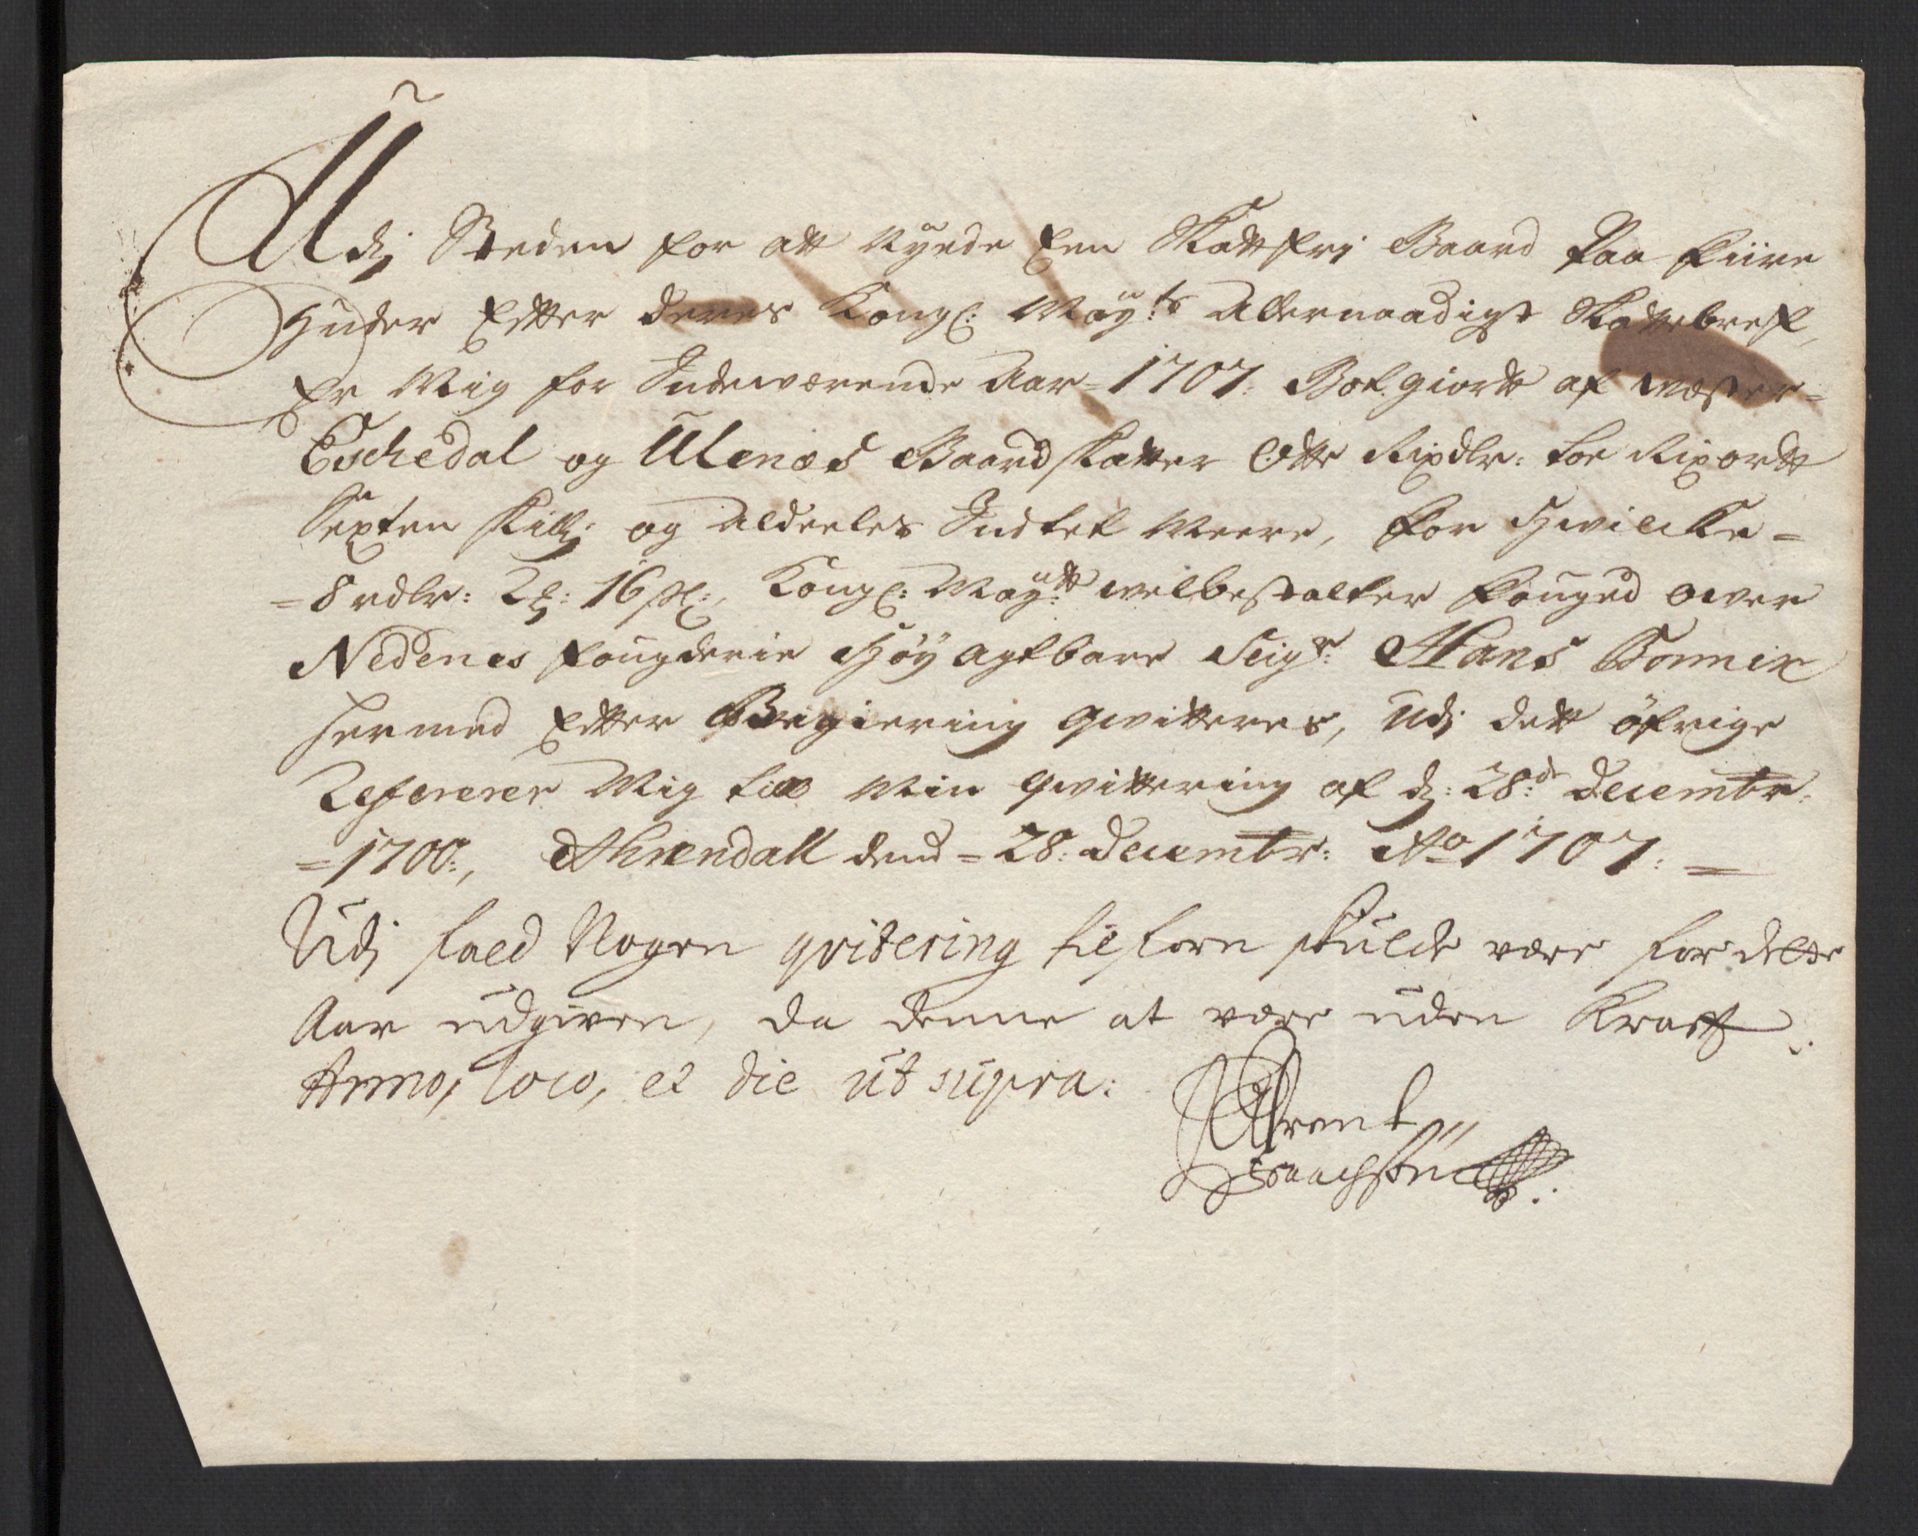 Udj Steden for att Nyede Een Skattfrj Gaard Paa Fiire
Huder Efter Deres Kongl: May:ts Allernaadigst Skattebref,
Er Mig for Indeværende Aar 1707. Bet. giordt af Wæster-
Eschedal og Ulenæs Gaard skatter Otte Rixdlr: toe Rixortt
Sexten skill: og Aldeeles Indtet Meere, for Hwilcke =
= 8 rdlr: 2 : 16 sk:, Kongl: May:tt welbestalter Fougud ower
Nedenes Fougderie Høy Agtbare Seigr: Hans Bonnix
Hermed Efter Begiering qwitteres, Udj dett øfrige
Refererer Mig till Min qwittering af d: 28:de Decembr:
= 1700:, Ahrendall dend = 28: Decembr: Ao 1707: =
Udj fald Nogen qvitering tilforn skulde være for dette
Aar udgiven, da denne at være uden Kraft.
Anno, loco, et die ut supra:
Arent
Isaachsen